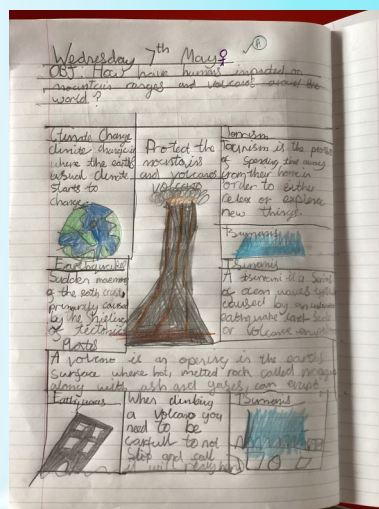 Wednesday 7th May
OBJ: How have humans impacted on
mountain ranges and volcanos around the
world?
Climate Change
climate change is
where the earth
usual climate
starts to
change
Protect the
mountains
and volcanos
volcano
Torrism
Tourism is the
of spending time away
from their home in
order to either
relax or explore
new things.
Tsunamis
Earthquakes
Sudden movement
of the earth crust,
primarily caused
by the
of tectonic
Plates
Tsunamis
A tsunami is a
of ocean waves
caused by
earthquake
or volcanic
A volcano is an opening in the earths
surface where hot, melted rock called
along with ash and gases, can erupt
When climbing
a volcano you
need to be
carefull to not
slip and
it will
Tsunamis